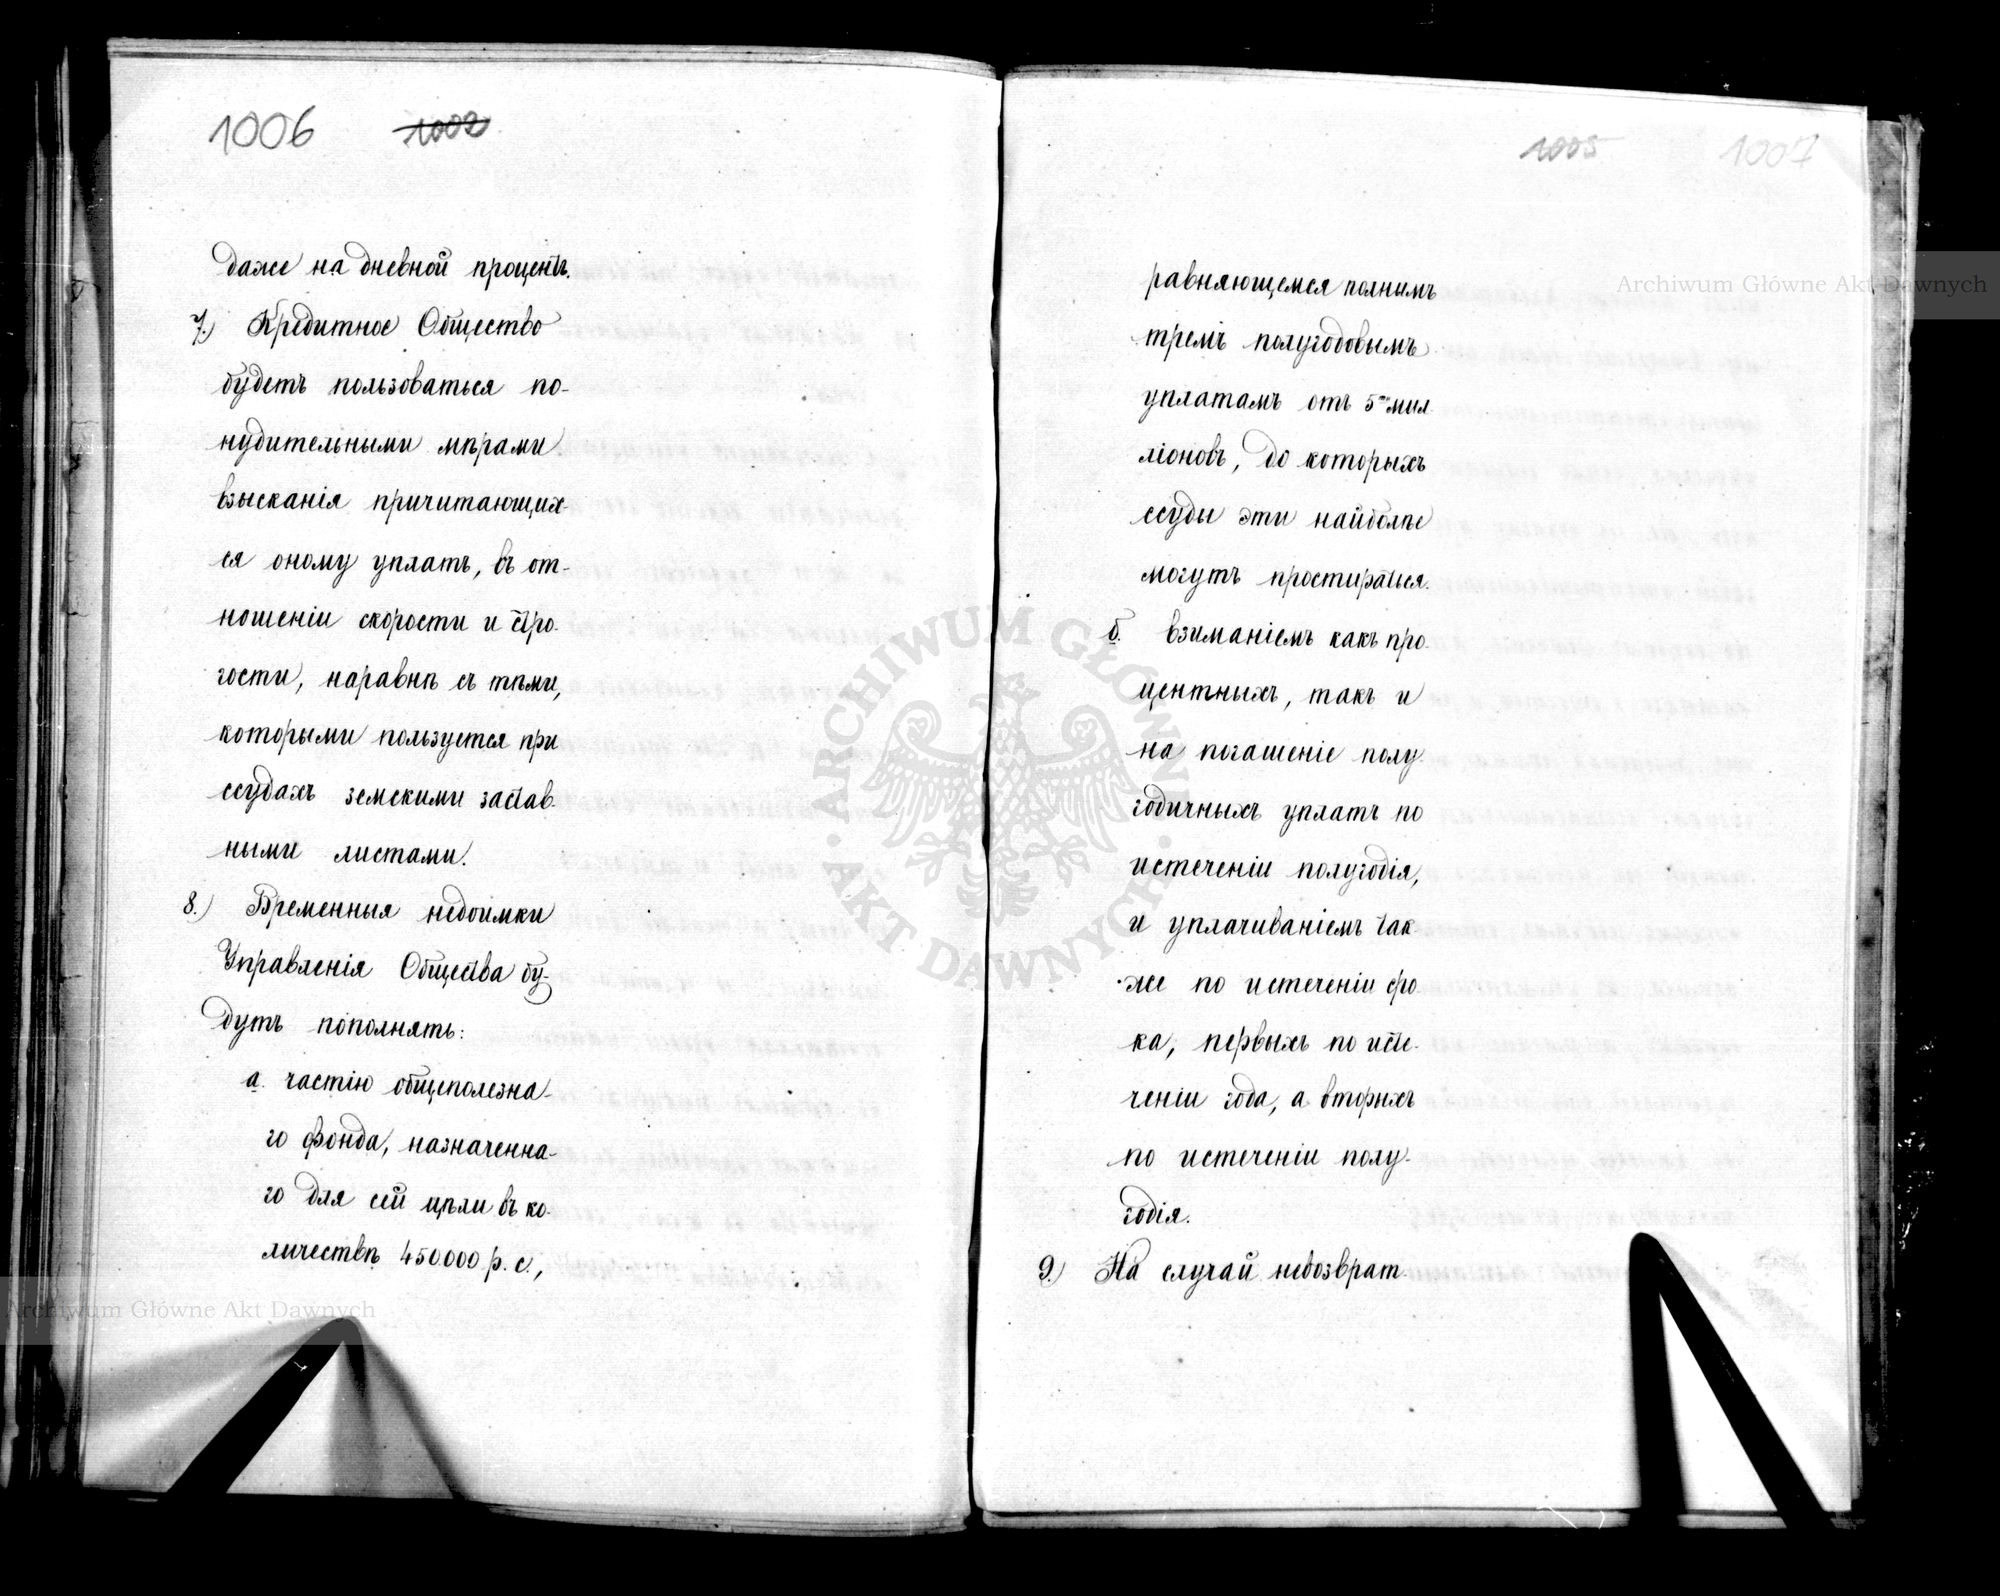 1006 1002
даже на дневной процентъ.
7.) Кредитное Общество
будетъ пользоваться по-
нудительными мѣрами
взысканія причитающих-
ся оному уплатъ, въ от-
ношеніи скорости и стро-
гости, наравнѣ съ тѣми,
которыми пользуется при
ссудахъ земскими застав-
ными листами.
8.) Временныя недоимки
Управленія Общества бу-
дутъ пополнять:
а. частію общеполезна-
го фонда, назначенна-
го для сей цѣли въ ко-
личествѣ 450000 р. с.,
1005 1007
равняющемся полнымъ
тремъ полугодовымъ
уплатамъ отъ 5ти мил-
ліоновъ, до которыхъ
ссуды эти наиболѣе
могутъ простираться.
б. взиманіемъ какъ про-
центныхъ, такъ и
на погашеніе полу-
годичныхъ уплатъ по
истеченіи полугодія,
и уплачиваніемъ так-
же по истеченіи сро-
ка, первыхъ по исте-
ченіи года, а вторыхъ
по истеченіи полу-
годія.
9.) На случай недозврат-
Archiwum Główne Akt Dawnych
Archiwum Główne Akt Dawnych
ARCHIWUM GŁÓWNE · AKT DAWNYCH ·